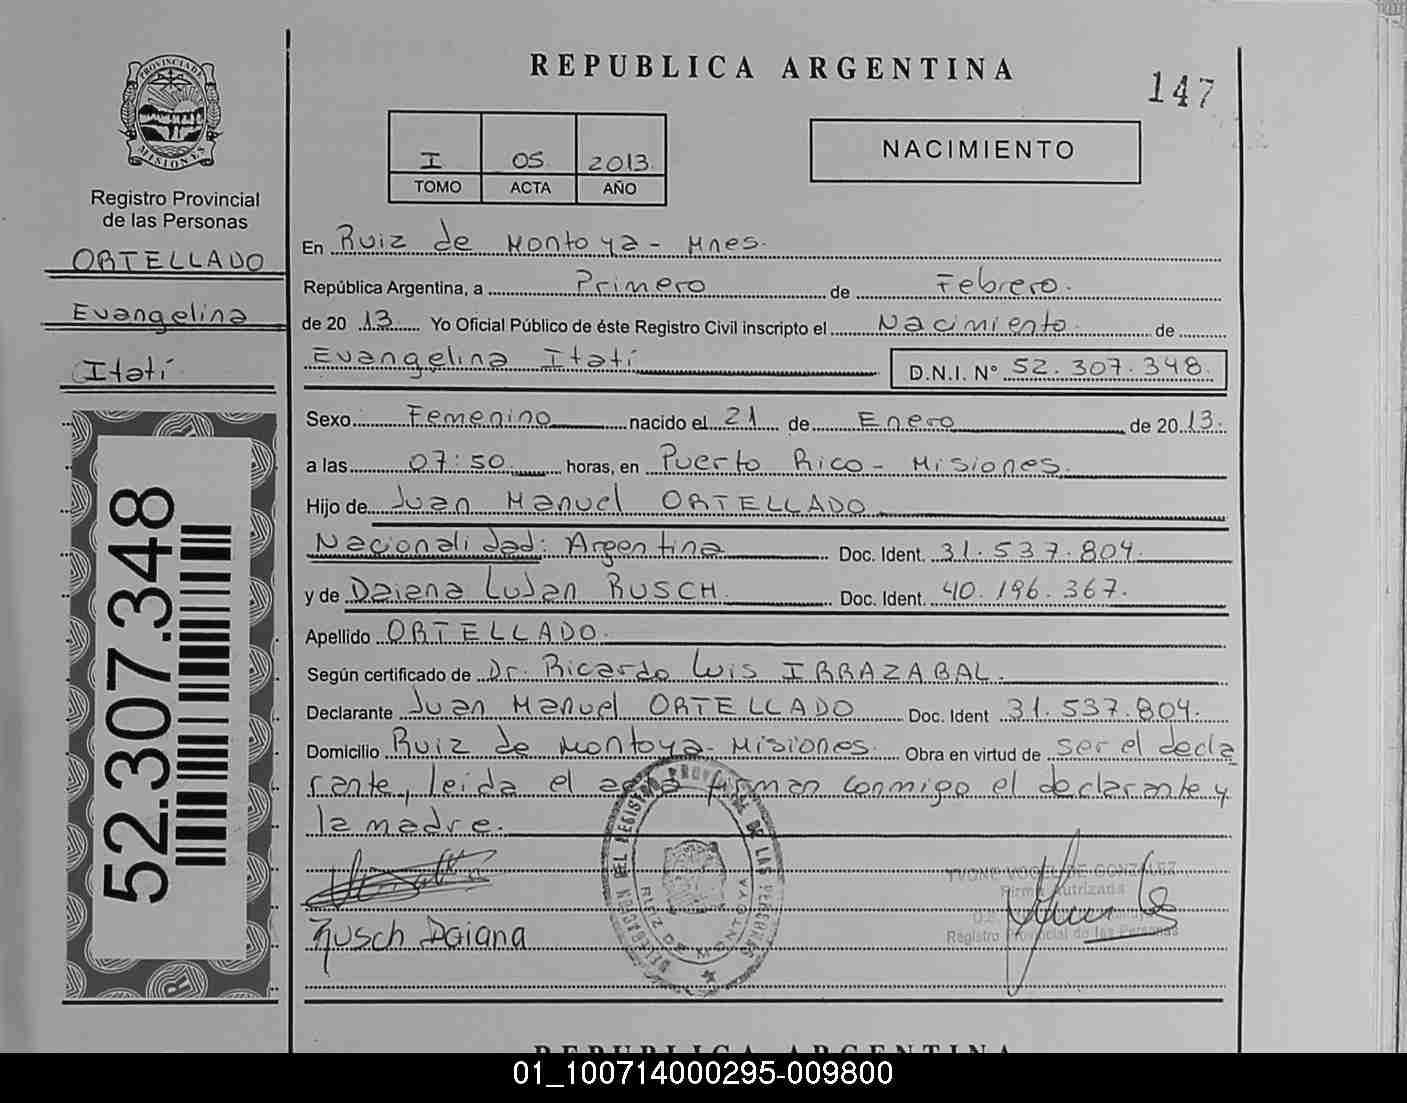 REPUBLICA ARGENTINA
147
PROVINCIA DE
MISIONES
Registro Provincial
de las Personas
ORTELLADO
Evangelina
Itatí
52.307.348
I 05 2013
TOMO ACTA AÑO
NACIMIENTO
En Ruiz de Montoya - Mnes.
República Argentina, a Primero de Febrero.
de 20 13. Yo Oficial Público de éste Registro Civil inscripto el Nacimiento de
Evangelina Itatí D.N.I. N° 52.307.348.
Sexo Femenino nacido el 21 de Enero de 20 13.
a las 07:50 horas, en Puerto Rico - Misiones.
Hijo de Juan Manuel ORTELLADO
Nacionalidad: Argentina Doc. Ident. 31.537.804.
y de Daiana Lujan RUSCH Doc. Ident. 40.196.367.
Apellido ORTELLADO.
Según certificado de Dr. Ricardo Luis IRRAZABAL.
Declarante Juan Manuel ORTELLADO Doc. Ident 31.537.804.
Domicilio Ruiz de Montoya - Misiones. Obra en virtud de ser el decla
rante, leida el acta firman conmigo el declarante y
la madre.
DELEGACION DEL REGISTRO PROVINCIAL DE LAS PERSONAS
RUIZ DE MONTOYA
YVONE VOGEL DE GONZALEZ
Firma Autorizada
Registro Provincial de las Personas
Rusch Daiana
REPUBLICA ARGENTINA
01_100714000295-009800